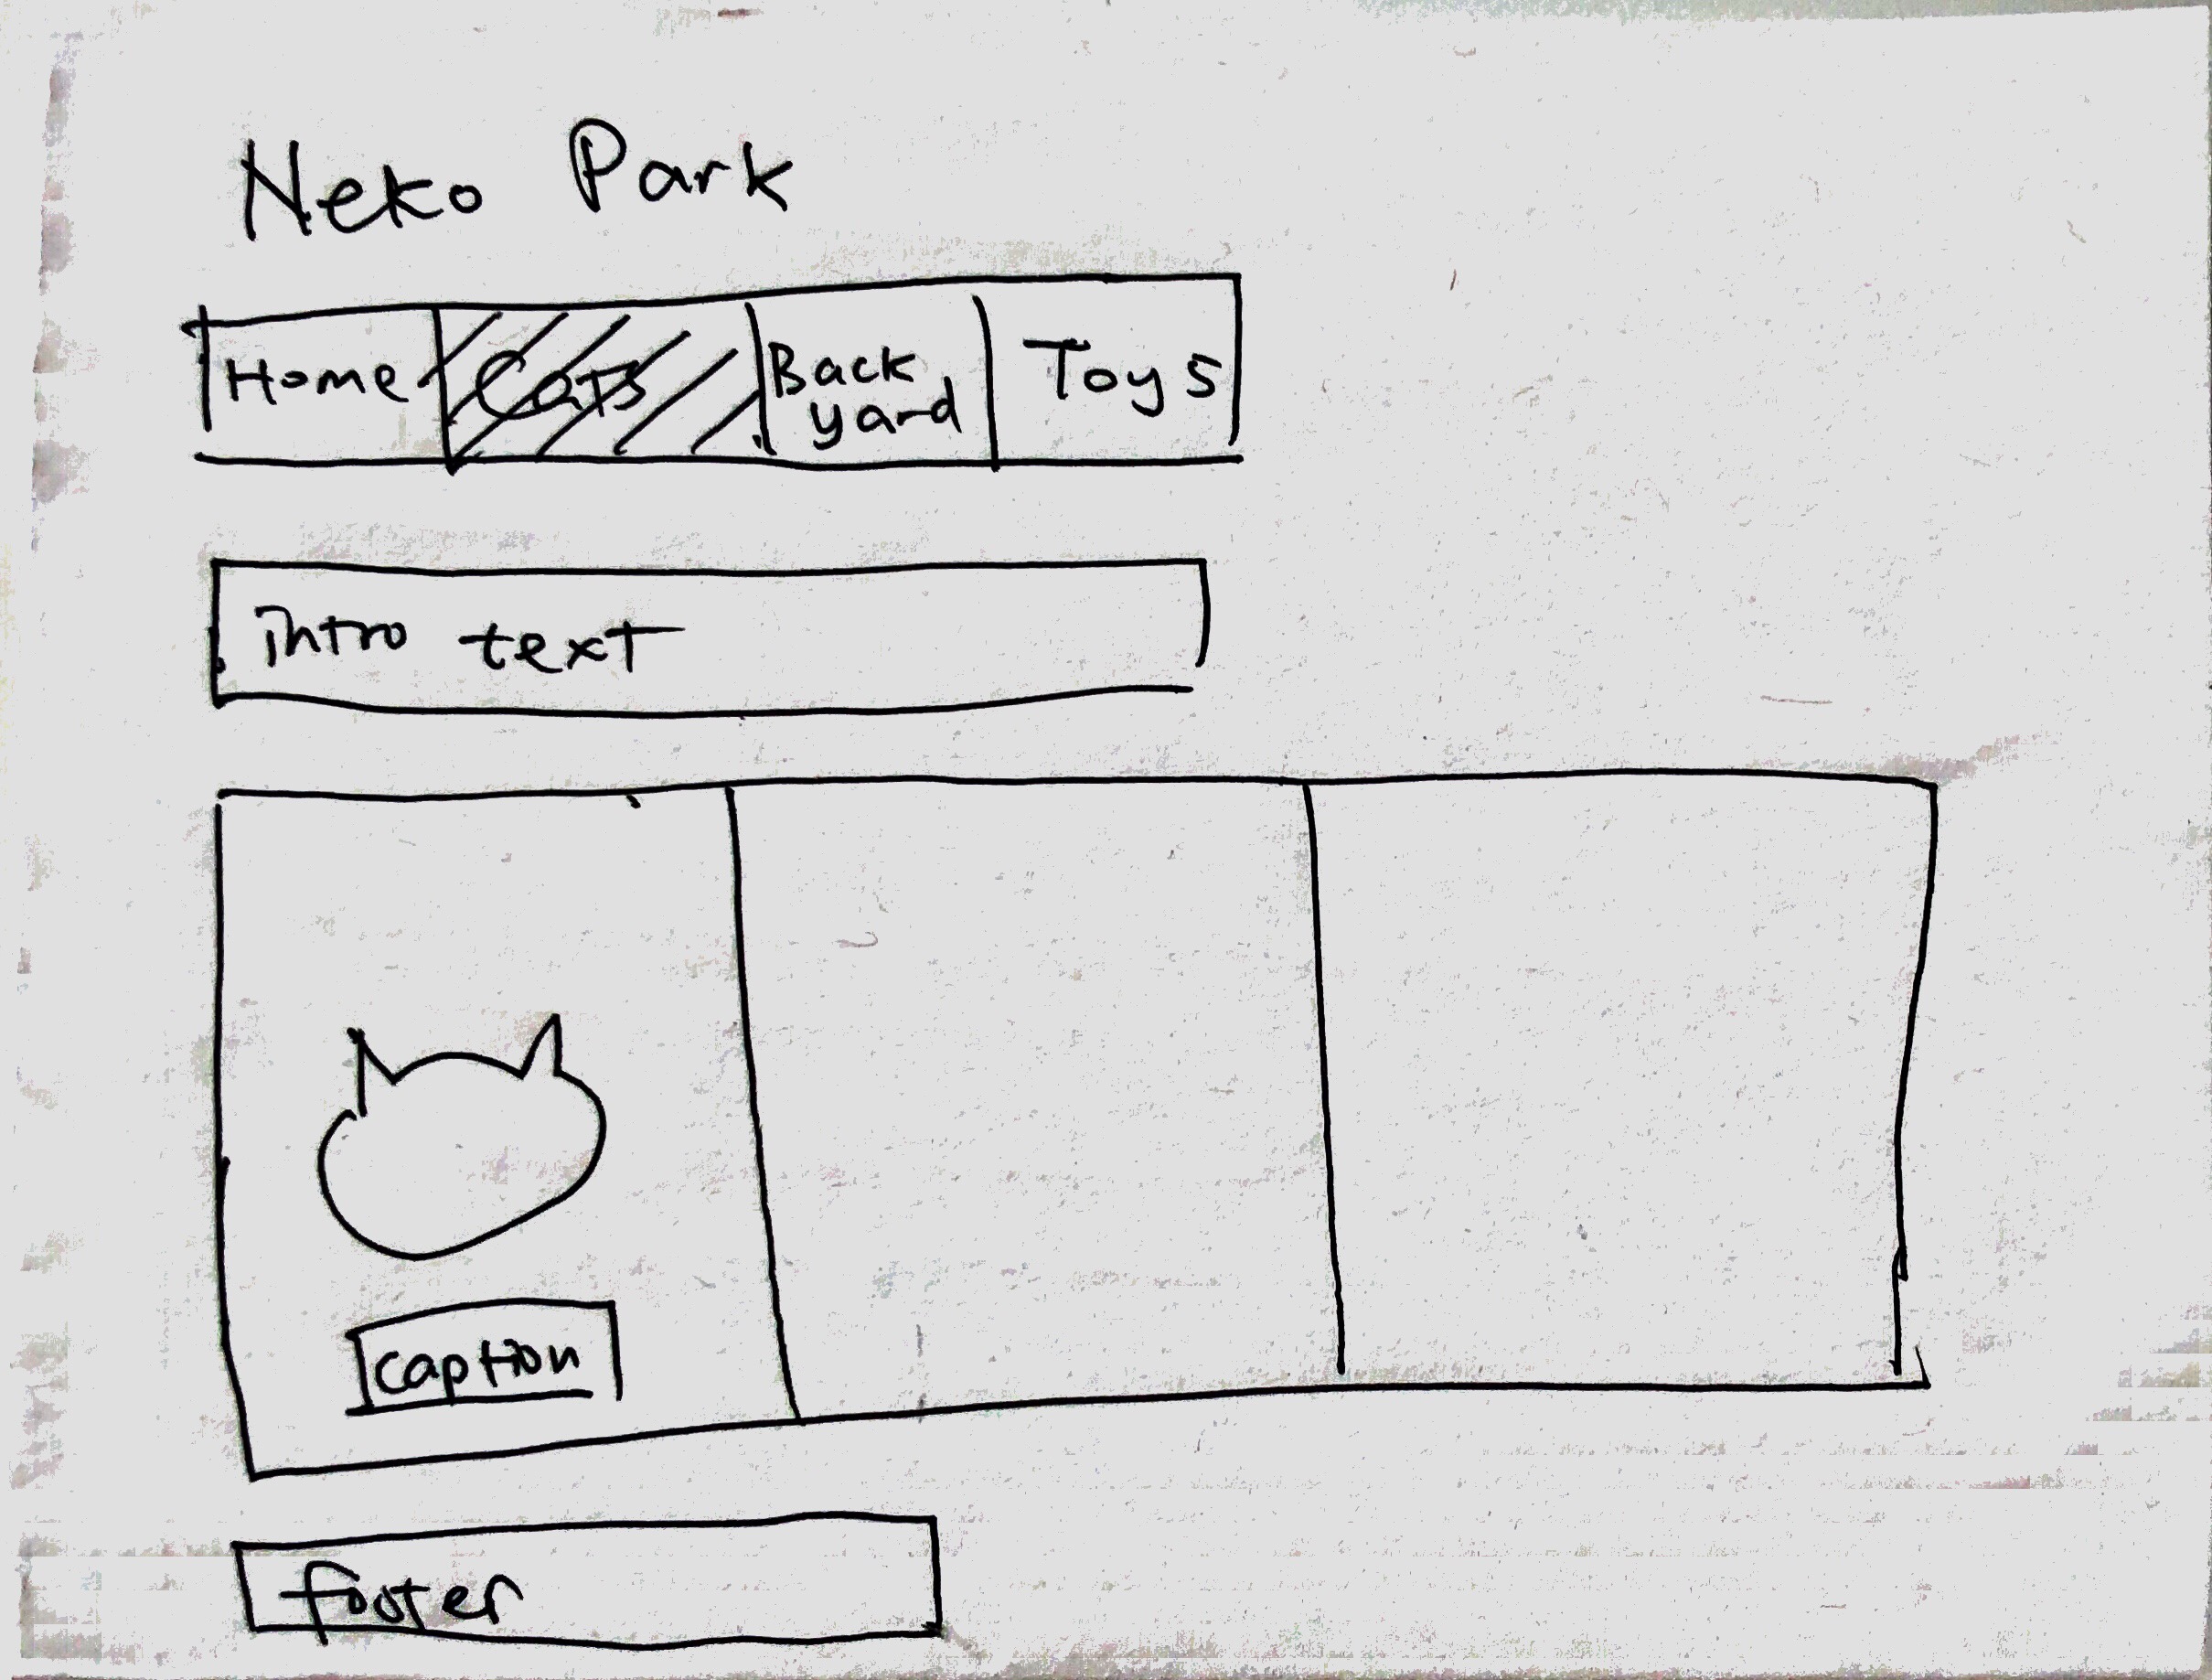 Neko Park
Home
Cats
Back
yard
Toys
intro text
caption
footer